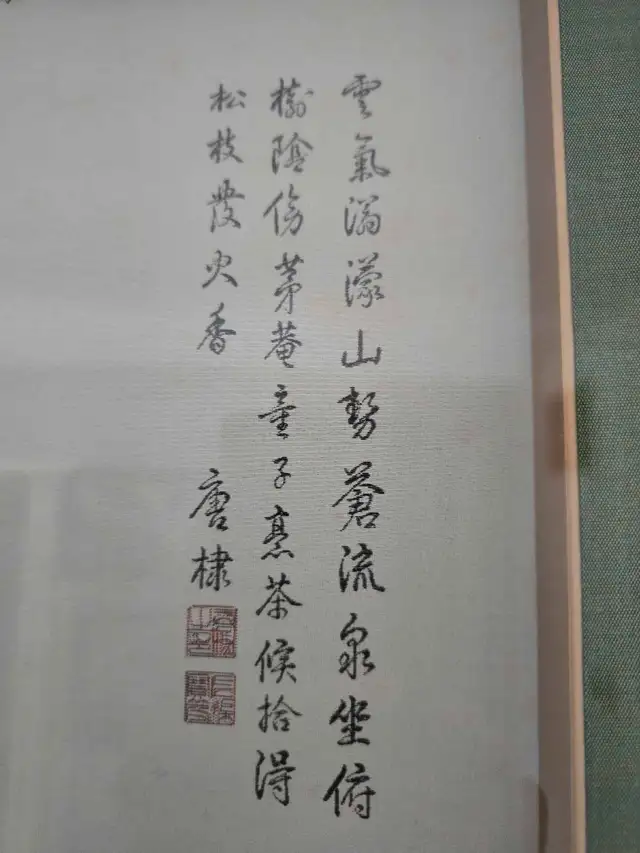 雲氣滃濛山勢蒼流泉坐俯
樹陰傍茅菴童子烹茶候拾得
松枝發火香
唐棣